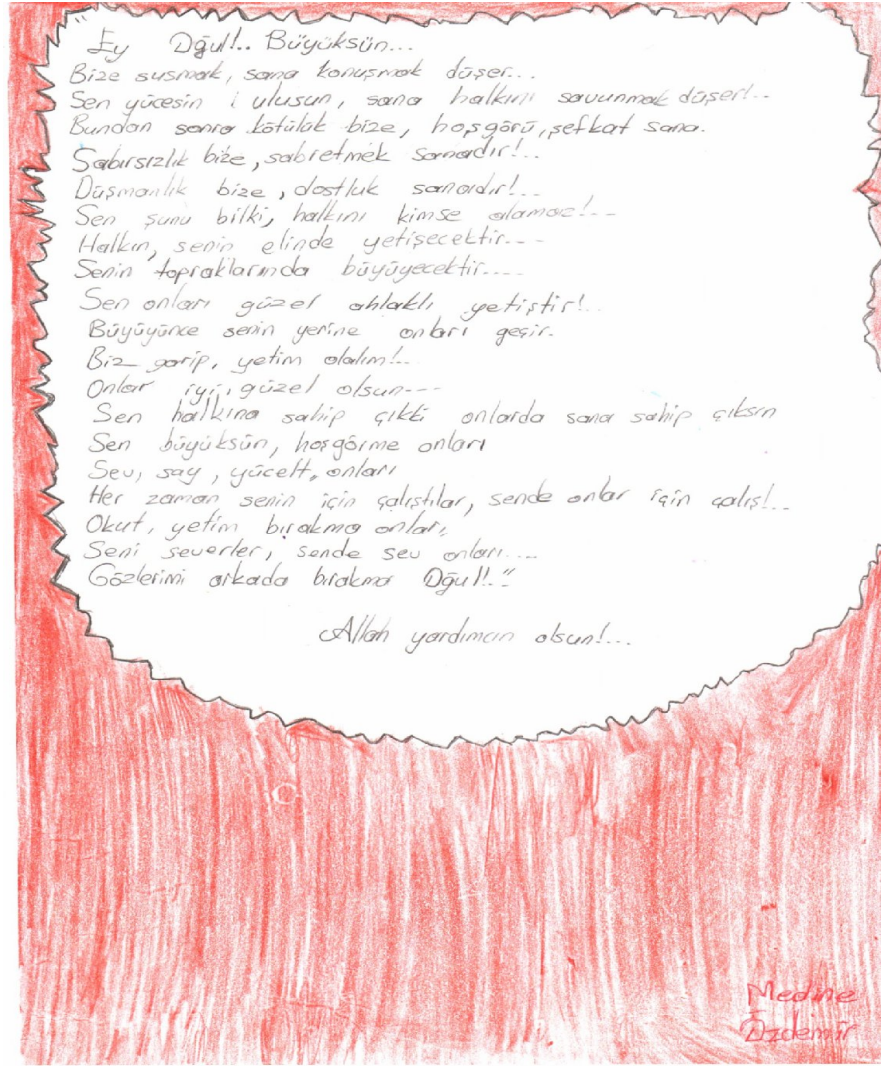 "Ey Oğul!.. Büyüksün...
Bize susmak, sana konuşmak düşer...
Sen yücesin, ulusun, sana halkını savunmak düşer!..
Bundan sonra kötülük bize, hoşgörü, şefkat sana.
Sabırsızlık bize, sabretmek sanadır!...
Düşmanlık bize, dostluk sanadır!...
Sen şunu bilki, halkını kimse alamaz!...
Halkın, senin elinde yetişecektir....
Senin topraklarında büyüyecektir....
Sen onları güzel ahlaklı yetiştir!...
Büyüyünce senin yerine onları geçir.
Biz garip, yetim olalım!...
Onlar iyi, güzel olsun....
Sen halkına sahip çıkki onlarda sana sahip çıksın
Sen büyüksün, hoşgörme onları
Sev, say, yücelt, onları
Her zaman senin için çalıştılar, sende onlar için çalış!...
Okut, yetim bırakma onları,
Seni severler, sende sev onları....
Gözlerimi arkada bırakma Oğul!.."
Allah yardımcın olsun!...
Medine
Özdemir